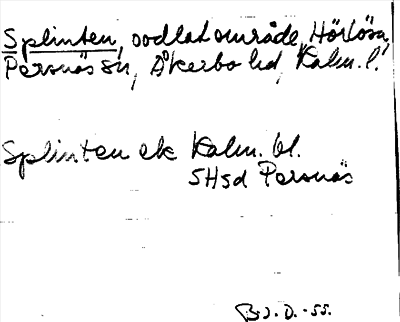 Splinten, oodlat område, Hörlösa,
Persnäs sn, Åkerbo hd, Kalm. l.
Splinten ek Kalm. bl.
5H5d Persnäs
B.J.D. -55.